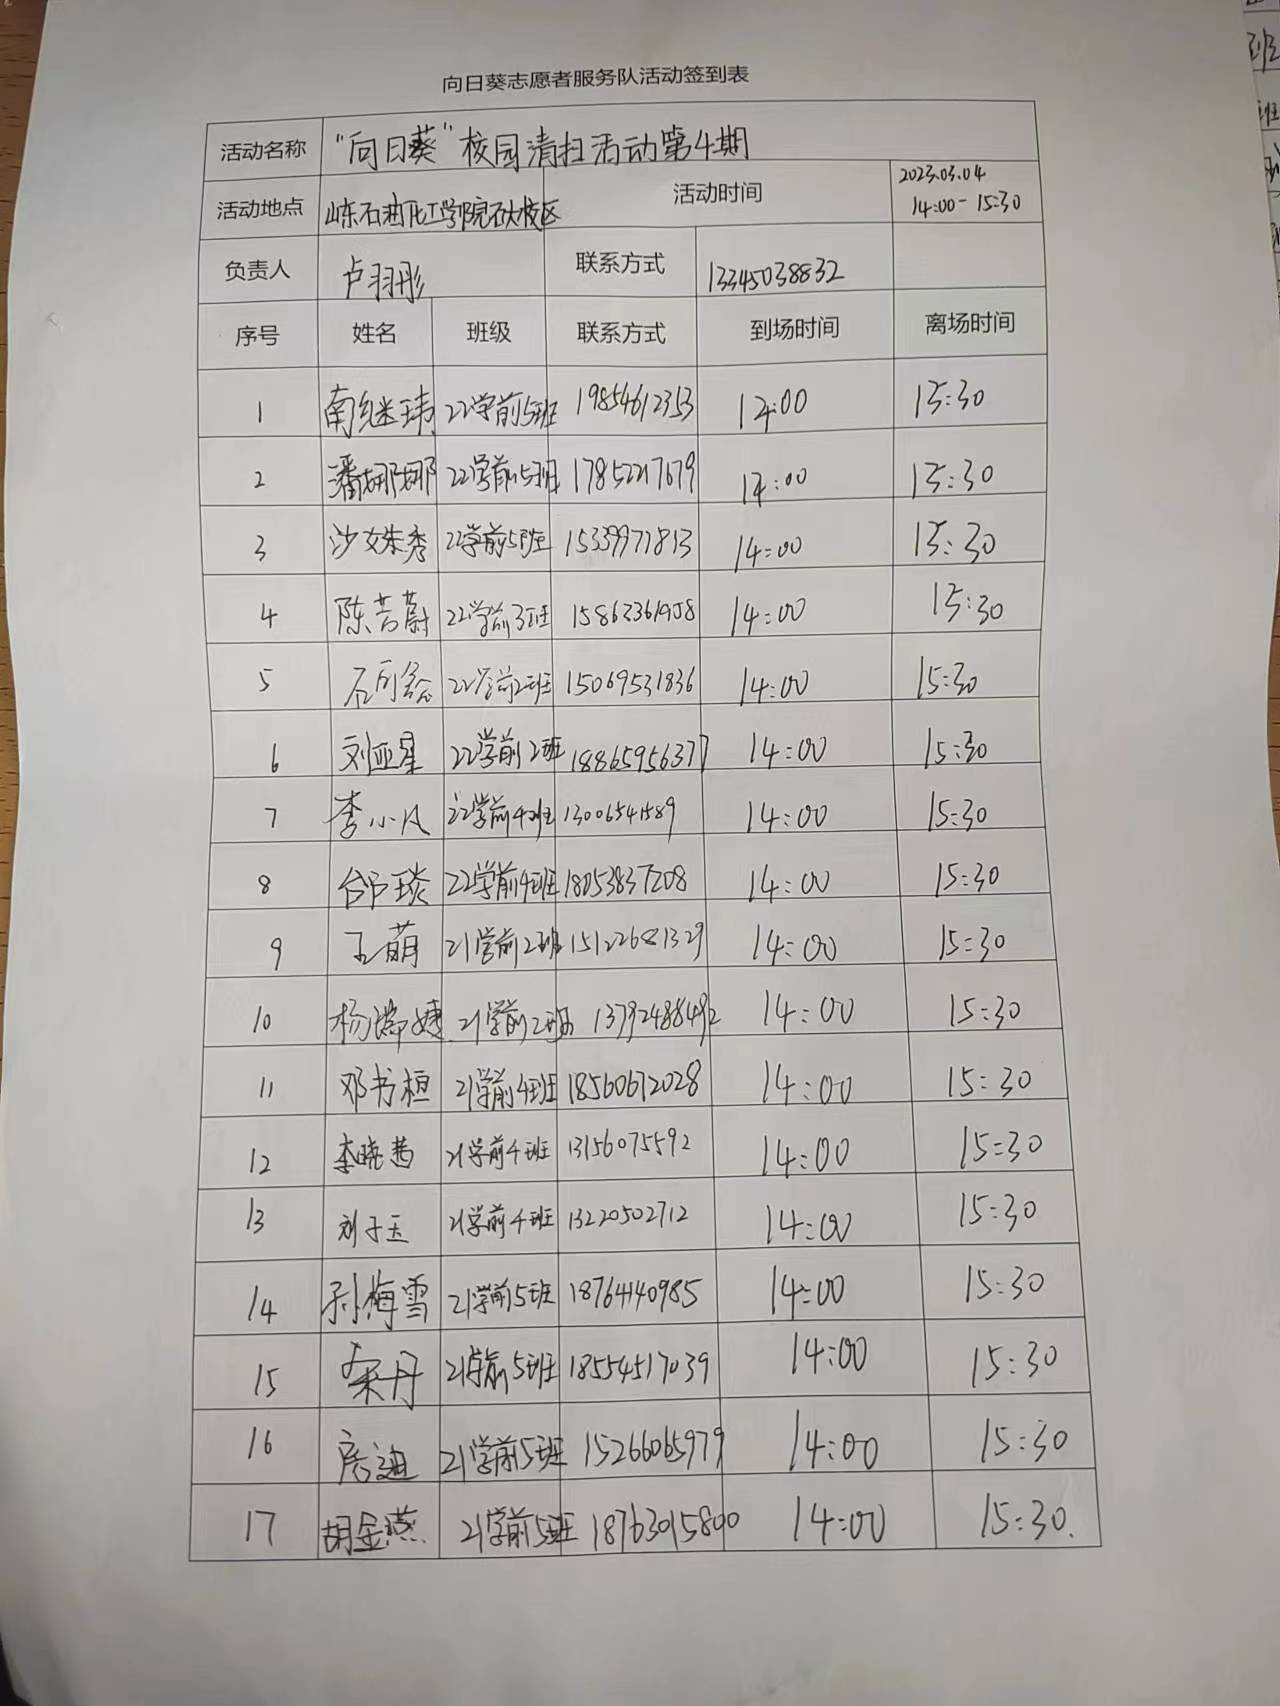 向日葵志愿者服务队活动签到表
活动名称 "向日葵"校园清扫活动第4期
活动地点 山东石油化工学院石大校区 活动时间 2023.03.04 14:00-15:30
负责人 卢羽彤 联系方式 13345038832
序号 姓名 班级 联系方式 到场时间 离场时间
1 南继玮 22学前5班 19854612353 14:00 15:30
2 潘娜娜 22学前5班 17852217679 14:00 15:30
3 沙姝秀 22学前5班 15339971813 14:00 15:30
4 陈芳蔚 22学前3班 15863361958 14:00 15:30
5 石可鑫 22学前2班 15069531836 14:00 15:30
6 刘亚星 22学前2班 18865956377 14:00 15:30
7 李小凡 22学前4班 13006541589 14:00 15:30
8 邰琰 22学前4班 18053837208 14:00 15:30
9 王萌 21学前2班 15122681329 14:00 15:30
10 杨瑞婕 21学前2班 13792488492 14:00 15:30
11 邓书桓 21学前4班 18560612028 14:00 15:30
12 李晓茜 21学前4班 13156075592 14:00 15:30
13 刘子玉 21学前4班 13220502712 14:00 15:30
14 孙梅雪 21学前5班 18764140985 14:00 15:30
15 栾丹 21学前5班 18554517039 14:00 15:30
16 房迪 21学前5班 15266065979 14:00 15:30
17 胡金燕 21学前5班 18763015800 14:00 15:30.